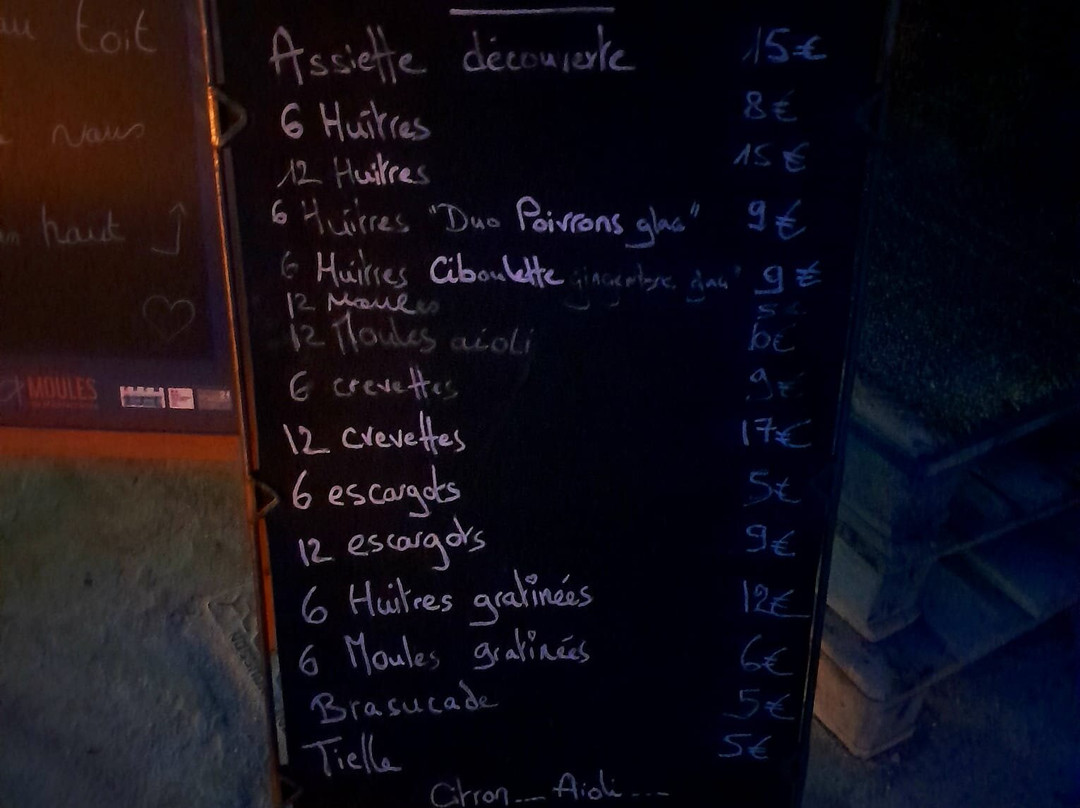 au toit
vous
en haut
MOULES
Assiette découverte 15€
6 Huîtres 8€
12 Huîtres 15€
6 Huîtres "Duo Poivrons glac" 9€
6 Huîtres Ciboulette gingembre glac" 9€
12 Moules 5€
12 Moules aioli 6€
6 crevettes 9€
12 crevettes 17€
6 escargots 5€
12 escargots 9€
6 Huitres gratinées 12€
6 Moules gratinées 6€
Brasucade 5€
Tielle 5€
Citron... Aioli...